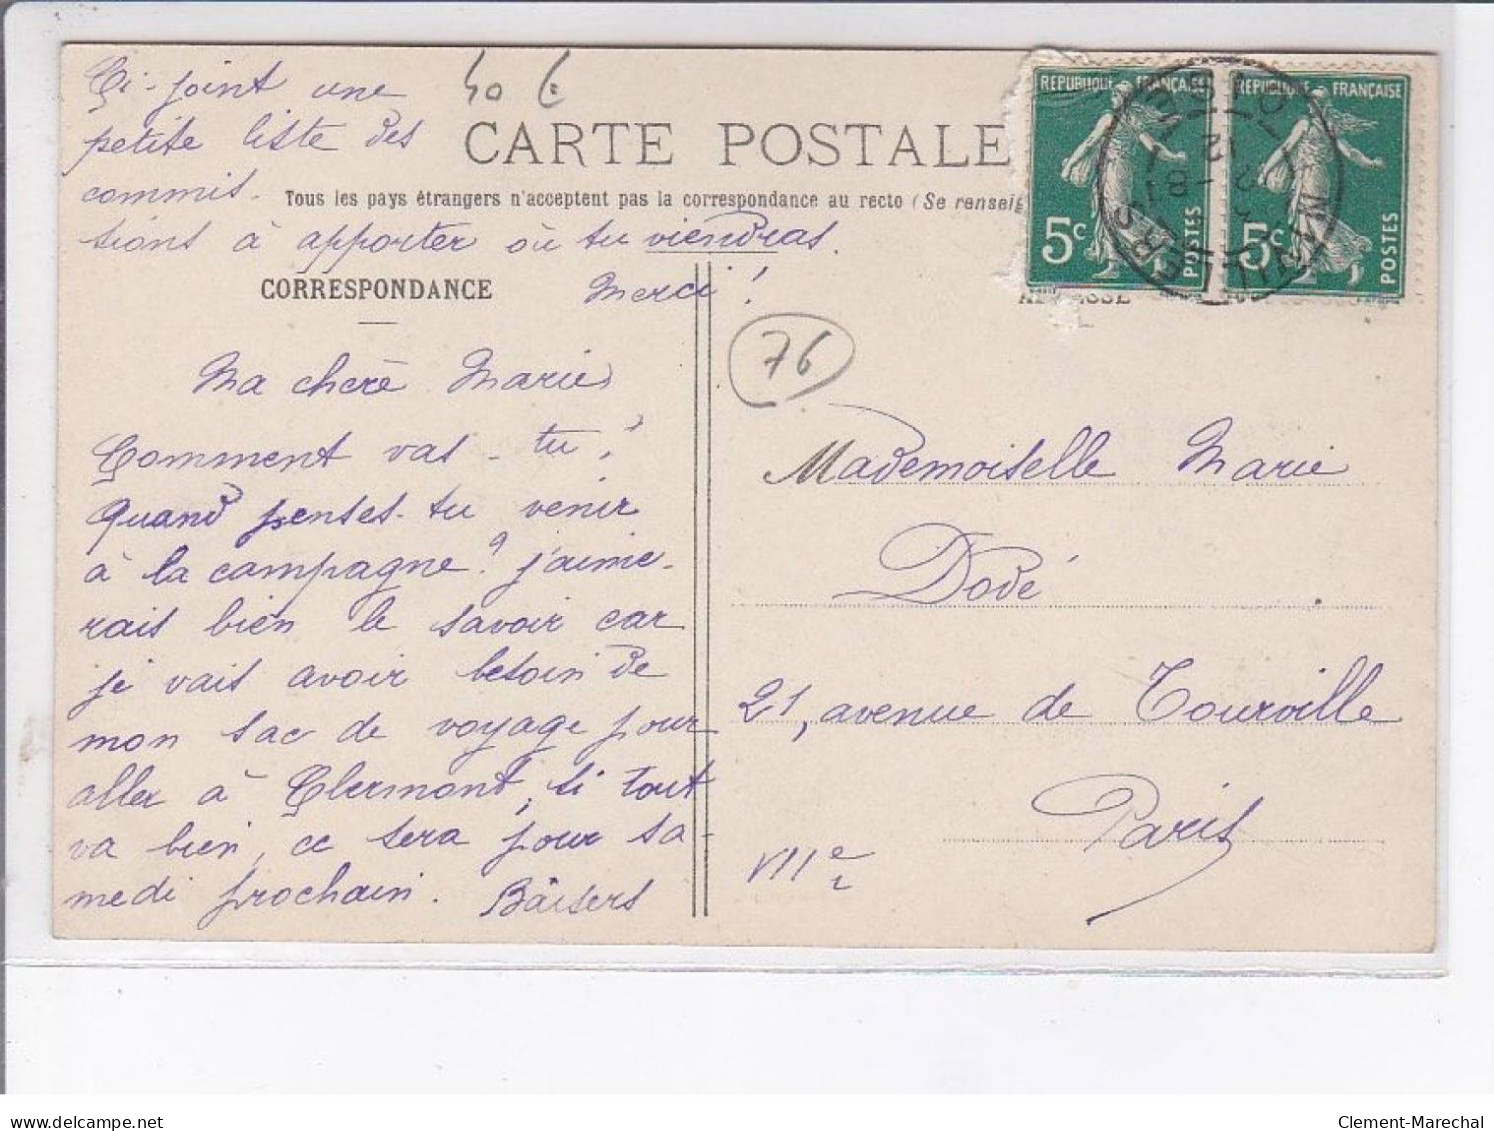 Ci-joint une
petite liste des
commis-
sions à apporter où tu viendras.
Merci !
40 €
CARTE POSTALE
Tous les pays étrangers n'acceptent pas la correspondance au recto (Se renseig
CORRESPONDANCE
Ma chère Marie
Comment vas-tu ?
Quand penses-tu venir
à la campagne ? j'aime-
rais bien le savoir car
je vais avoir besoin de
mon sac de voyage pour
aller à Clermont, si tout
va bien, ce sera pour sa-
medi prochain. Baisers
REPUBLIQUE FRANÇAISE
5c
POSTES
REPUBLIQUE FRANÇAISE
5c
POSTES
OISE
12
76
Mademoiselle Marie
Dodé
21, avenue de Tourville
Paris
VIIe
Clement-Marechal